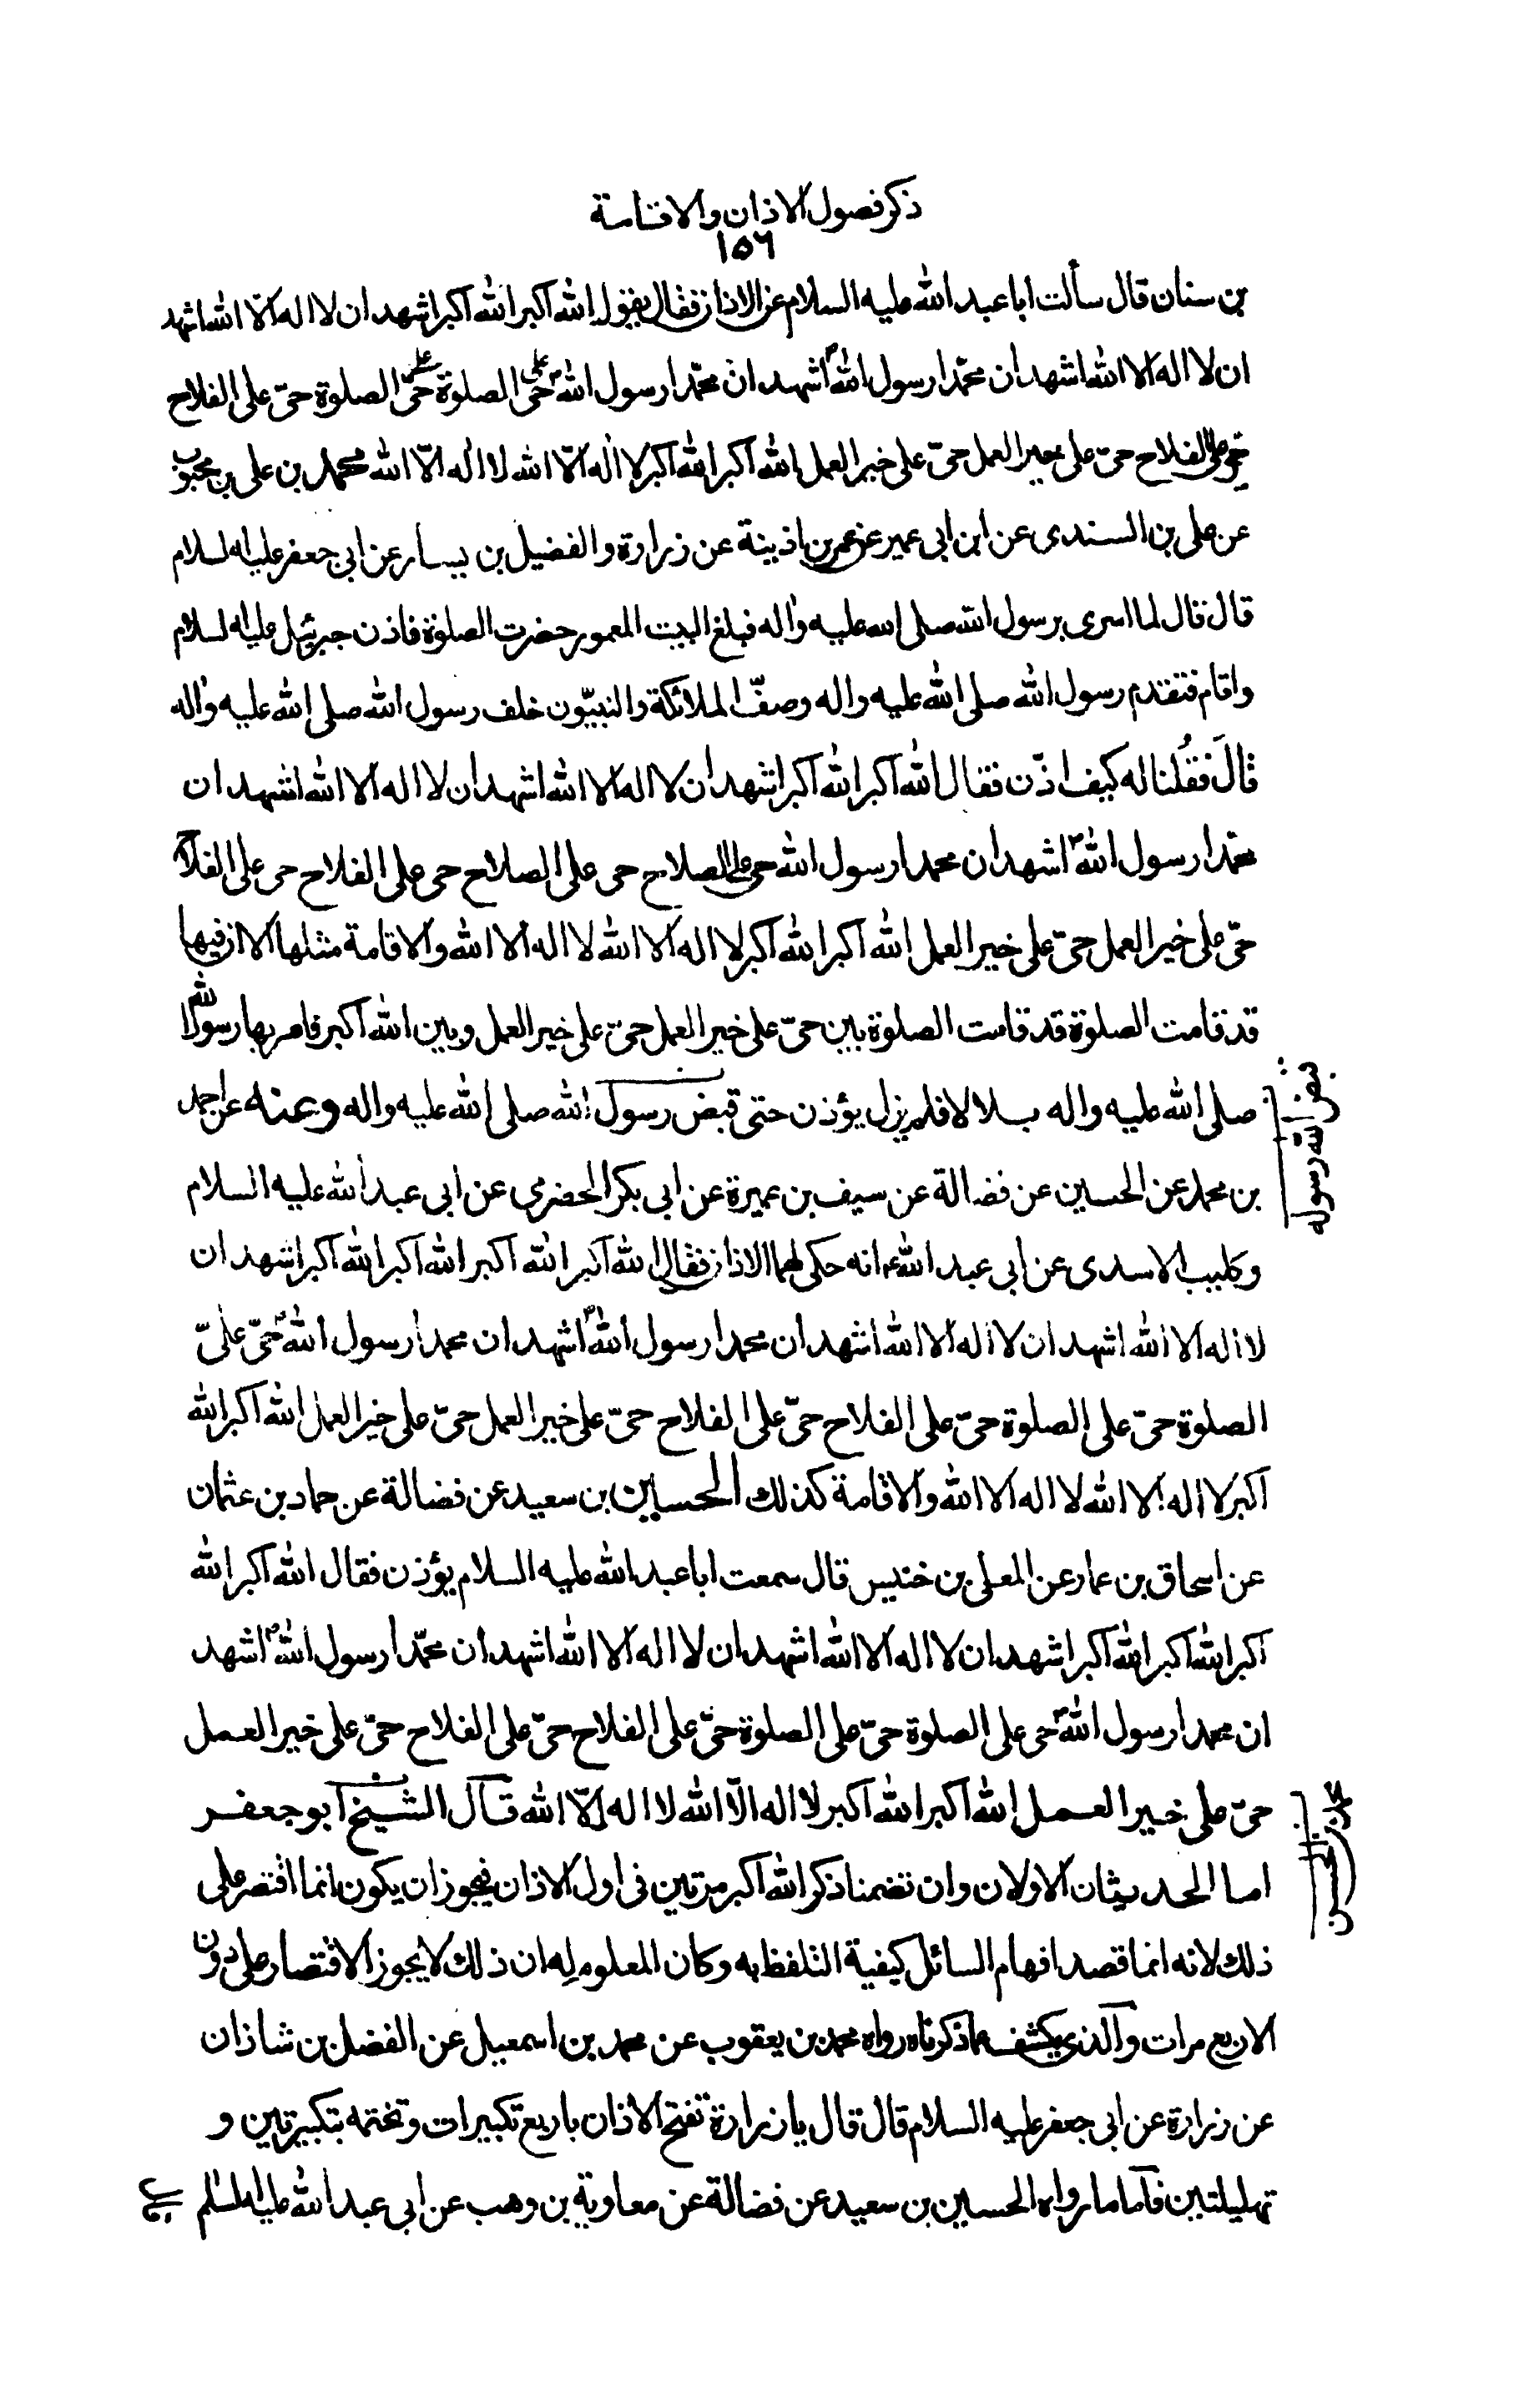 ذكر فصول الاذان والاقامة
١٥٦
بن سنان قال سألت ابا عبد الله عليه السلام عن الاذان فقال يقول الله اكبر الله اكبر اشهد ان لا اله الّا الله اشهد
ان لا اله الا الله اشهد ان محمّدا رسول الله ص اشهد ان محمّدا رسول الله ص حىّ على الصلوة حىّ على الصلوة حىّ على الفلاح
حىّ على الفلاح حىّ على خير العمل حىّ على خير العمل الله اكبر الله اكبر لا اله الّا الله لا اله الّا الله محمد بن على بن محبوب
عن على بن السندى عن ابن ابى عمير عن عمر بن اذينة عن زرارة والفضيل بن يسار عن ابى جعفر عليه السلام
قال قال لما اسرى برسول الله صلى الله عليه واله فبلغ البيت المعمور حضرت الصلوة فاذن جبرئيل عليه السلام
واقام فتقدم رسول الله صلى الله عليه واله وصفّ الملائكة والنبيّون خلف رسول الله صلى الله عليه واله
قالَ فقُلنا له كيف اذّن فقال الله اكبر الله اكبر اشهد ان لا اله الا الله اشهد ان لا اله الا الله اشهد ان
محمّدا رسول الله ص اشهد ان محمدا رسول الله حى على الصلاح حى على الصلاح حى على الفلاح حى على الفلاح
حىّ على خير العمل حىّ على خير العمل الله اكبر الله اكبر لا اله الا الله لا اله الا الله والاقامة مثلها الا ان فيها
قد قامت الصلوة قد قامت الصلوة بين حىّ على خير العمل حىّ على خير العمل وبين الله اكبر فامر بها رسول الله
صلى الله عليه واله بلالا فلم يزل يؤذن حتى قبض رسول الله صلى الله عليه واله وعنه عن احمد
قبض الله رسوله
بن محمد عن الحسين عن فضالة عن سيف بن عميرة عن ابى بكر الحضرمى عن ابى عبد الله عليه السلام
وكليب الاسدى عن ابى عبد الله ع انه حكى لهما الاذان فقال الله اكبر الله اكبر الله اكبر الله اكبر اشهد ان
لا اله الا الله اشهد ان لا اله الا الله اشهد ان محمدا رسول الله ص اشهد ان محمدا رسول الله ص حىّ على
الصلوة حىّ على الصلوة حىّ على الفلاح حىّ على الفلاح حىّ على خير العمل حىّ على خير العمل الله اكبر الله
اكبر لا اله الا الله لا اله الا الله والاقامة كذلك الحسين بن سعيد عن فضالة عن حماد بن عثمان
عن اسحاق بن عمار عن المعلى بن خنيس قال سمعت ابا عبد الله عليه السلام يؤذن فقال الله اكبر الله
اكبر الله اكبر الله اكبر اشهد ان لا اله الا الله اشهد ان لا اله الا الله اشهد ان محمّدا رسول الله ص اشهد
ان محمدا رسول الله ص حى على الصلوة حىّ على الصلوة حىّ على الفلاح حىّ على الفلاح حىّ على خير العمل
حىّ على خير العمل الله اكبر الله اكبر لا اله الّا الله لا اله الّا الله قال الشيخ ابو جعفر
محمد بن الحسن
اما الحديثان الاولان وان تضمنا ذكر الله اكبر مرتين فى اول الاذان فيجوز ان يكون انما اقتصر على
ذلك لانه انما قصد افهام السائل كيفية التلفظ به وكان المعلوم له ان ذلك لا يجوز الاقتصار على دون
الاربع مرات والذى يكشف عما ذكرناه رواه محمد بن يعقوب عن محمد بن اسمعيل عن الفضل بن شاذان
عن زرارة عن ابى جعفر عليه السلام قال قال يا زرارة تفتح الاذان باربع تكبيرات وتختمه بتكبيرتين و
تهليلتين فاما ما رواه الحسين بن سعيد عن فضالة عن معاوية بن وهب عن ابى عبد الله عليه السلم